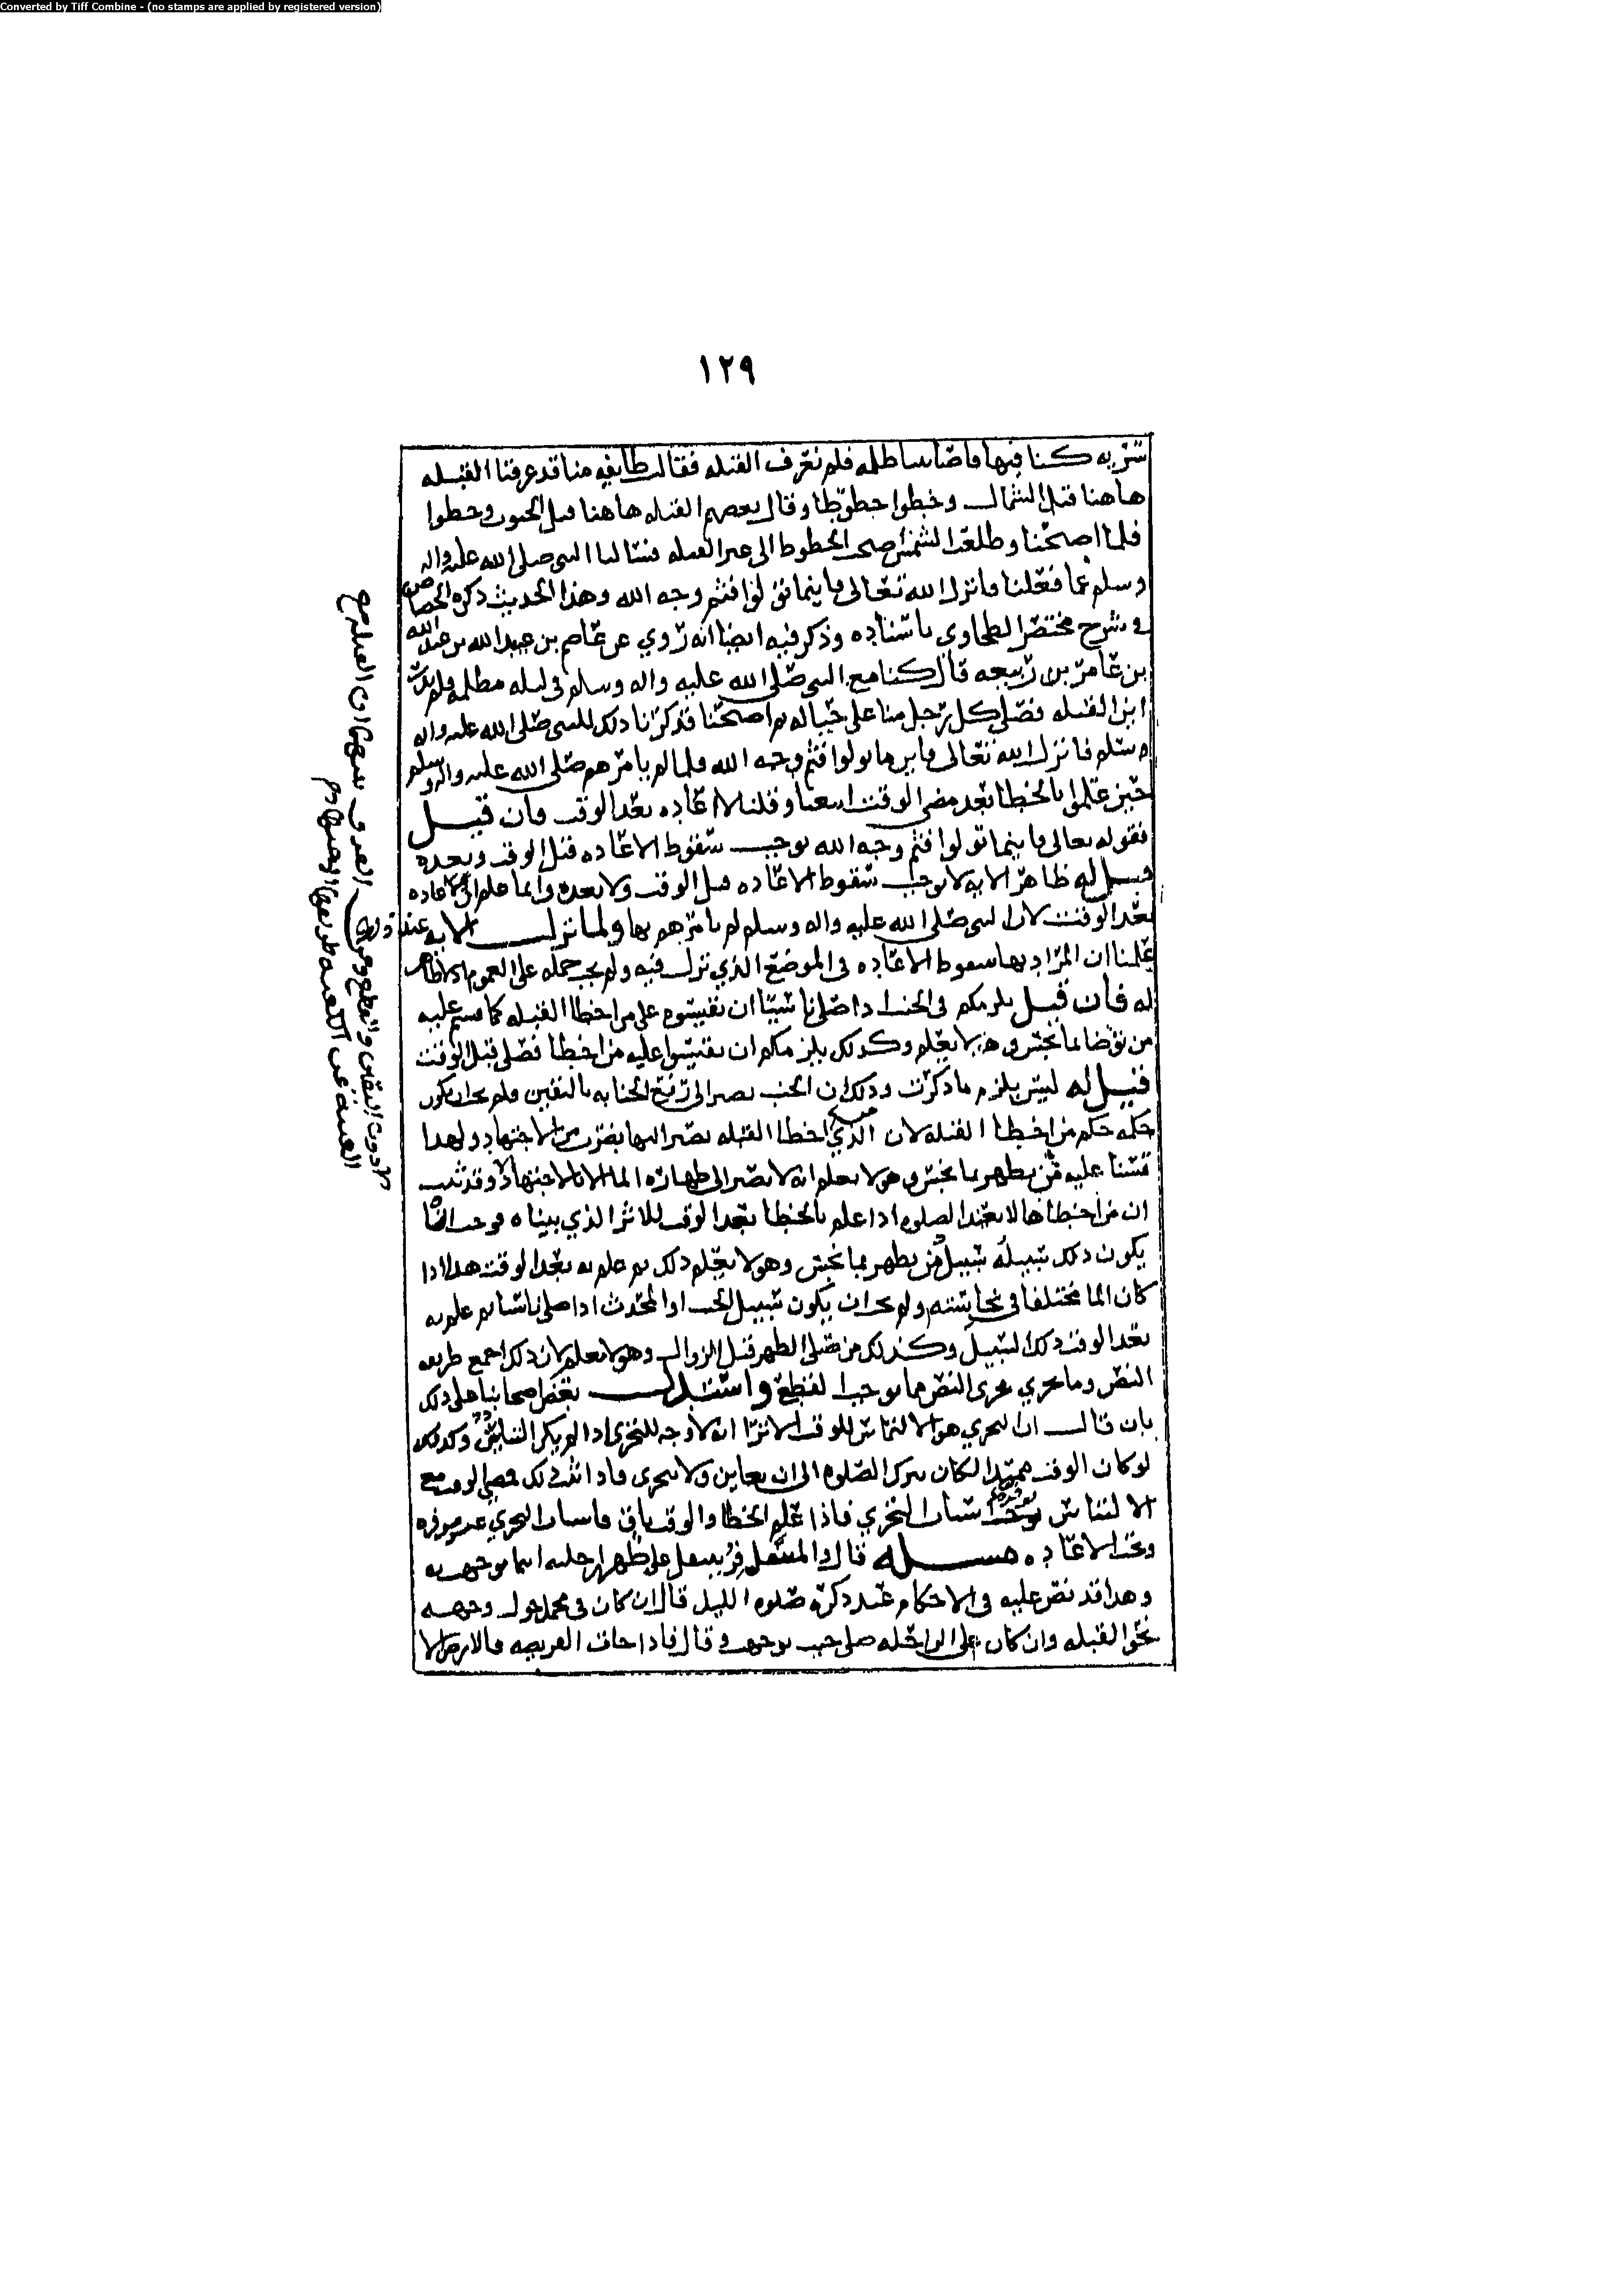 Converted by Tiff Combine - (no stamps are applied by registered version)
١٢٩
سريه كنا فيها فاصابتنا ظلمه فلم نعرف القبله فقالت طايفه منا قد عرفنا القبله
هاهنا قبل الشمال وخطوا خطوطا وقال بعضهم القبله هاهنا قبل الجنوب وخطوا
فلما اصبحنا وطلعت الشمس اصبحت الخطوط الى غير القبله فسالنا النبي صلى الله عليه واله
وسلم عما فعلنا فانزل الله تعالى فاينما تولوا فثم وجه الله وهذا الحديث ذكره الجصاص
في شرح مختصر الطحاوي باسناده وذكر فيه ايضا انه روي عن عاصم بن عبيد الله عن عبد الله
بن عامر بن ربيعه قال كنا مع النبي صلى الله عليه واله وسلم في ليله مظلمه فلم ندر
اين القبله فصلى كل رجل منا على حياله ثم اصبحنا فذكرنا ذلك للنبي صلى الله عليه واله
وسلم فانزل الله تعالى فاين ما تولوا فثم وجه الله فلما لم يامرهم صلى الله عليه واله وسلم
حين علموا بالخطا بعد مضي الوقت اتبعنا وقلنا لا اعاده بعد الوقت فان قيل
فقوله تعالى فاينما تولوا فثم وجه الله يوجب سقوط الاعاده قبل الوقت وبعده
قيل له ظاهر الايه لا يوجب سقوط الاعاده قبل الوقت ولا بعده وانما علم ان لا اعاده
بعد الوقت لان النبي صلى الله عليه واله وسلم لم يامرهم بها ولما نزلت الايه عند ذلك
علمنا ان المراد بها سقوط الاعاده في الموضع الذي نزلت فيه ولم يجب حمله على العموم اذ لا ظاهر
له فان قيل يلزمكم في الجنب اذا صلى ناسيا ان تقيسوه على من اخطا القبله كما قستم عليه
من توضا بما نجس وهو لا يعلم وكذلك يلزمكم ان تقيسوا عليه من اخطا فصلى قبل الوقت
قيل له ليس يلزم ما ذكرت وذلك ان الجنب يصير الى رفع الجنابه باليقين فلم يجز ان يكون
حكمه حكم من اخطا القبله لان الذي اخطا القبله يصير اليها بضرب من الاجتهاد ولهذا
قسنا عليه من يطهر بما نجس وهو لا يعلم انه لا يصير الى طهارة الما الا بالاجتهاد وقد ثبت
ان من اخطاها لا يعيد الصلوه اذا علم بالخطا بعد الوقت للاثر الذي بيناه فوجب ايضا
يكون ذلك سبيله سبيل من يطهر بما نجس وهو لا يعلم ذلك ثم علم به بعد الوقت هذا اذا
كان الما مختلفا في نجاسته ولم يجز ان يكون سبيل الجنب او المحدث اذا صلى ناسيا ثم علم به
بعد الوقت ذلك السبيل وكذلك من صلى الظهر قبل الزوال وهو لا يعلم لان ذلك اجمع طريقه
النص وما يجري مجرى النص مما يوجب القطع واستدل بعض اصحابنا على ذلك
بان قال ان التحري هو الالتماس للوقت الا ترى انه لا وجه للتحري اذا لم يكن التباس وكذلك
لو كان الوقت ممتدا لكان يترك الصلوه الى ان يعاين ولا يتحرى فاذا ثبت ذلك فمضي الوقت مع
الالتباس يوجب اسباب التحري فاذا علم الخطا والوقت باق فاسباب التحري غير موفره
وتجب الاعاده مسله قال والمتنفل في السفر يصلي على ظهر راحلته اينما توجهت به
وهذا قد نص عليه في الاحكام عند ذكره صلوه الليل قال ان كان في محمل حول وجهه
نحو القبله وان كان على الراحله صلى حيث توجهت وقال فاذا جات الفريضه فالارض الا